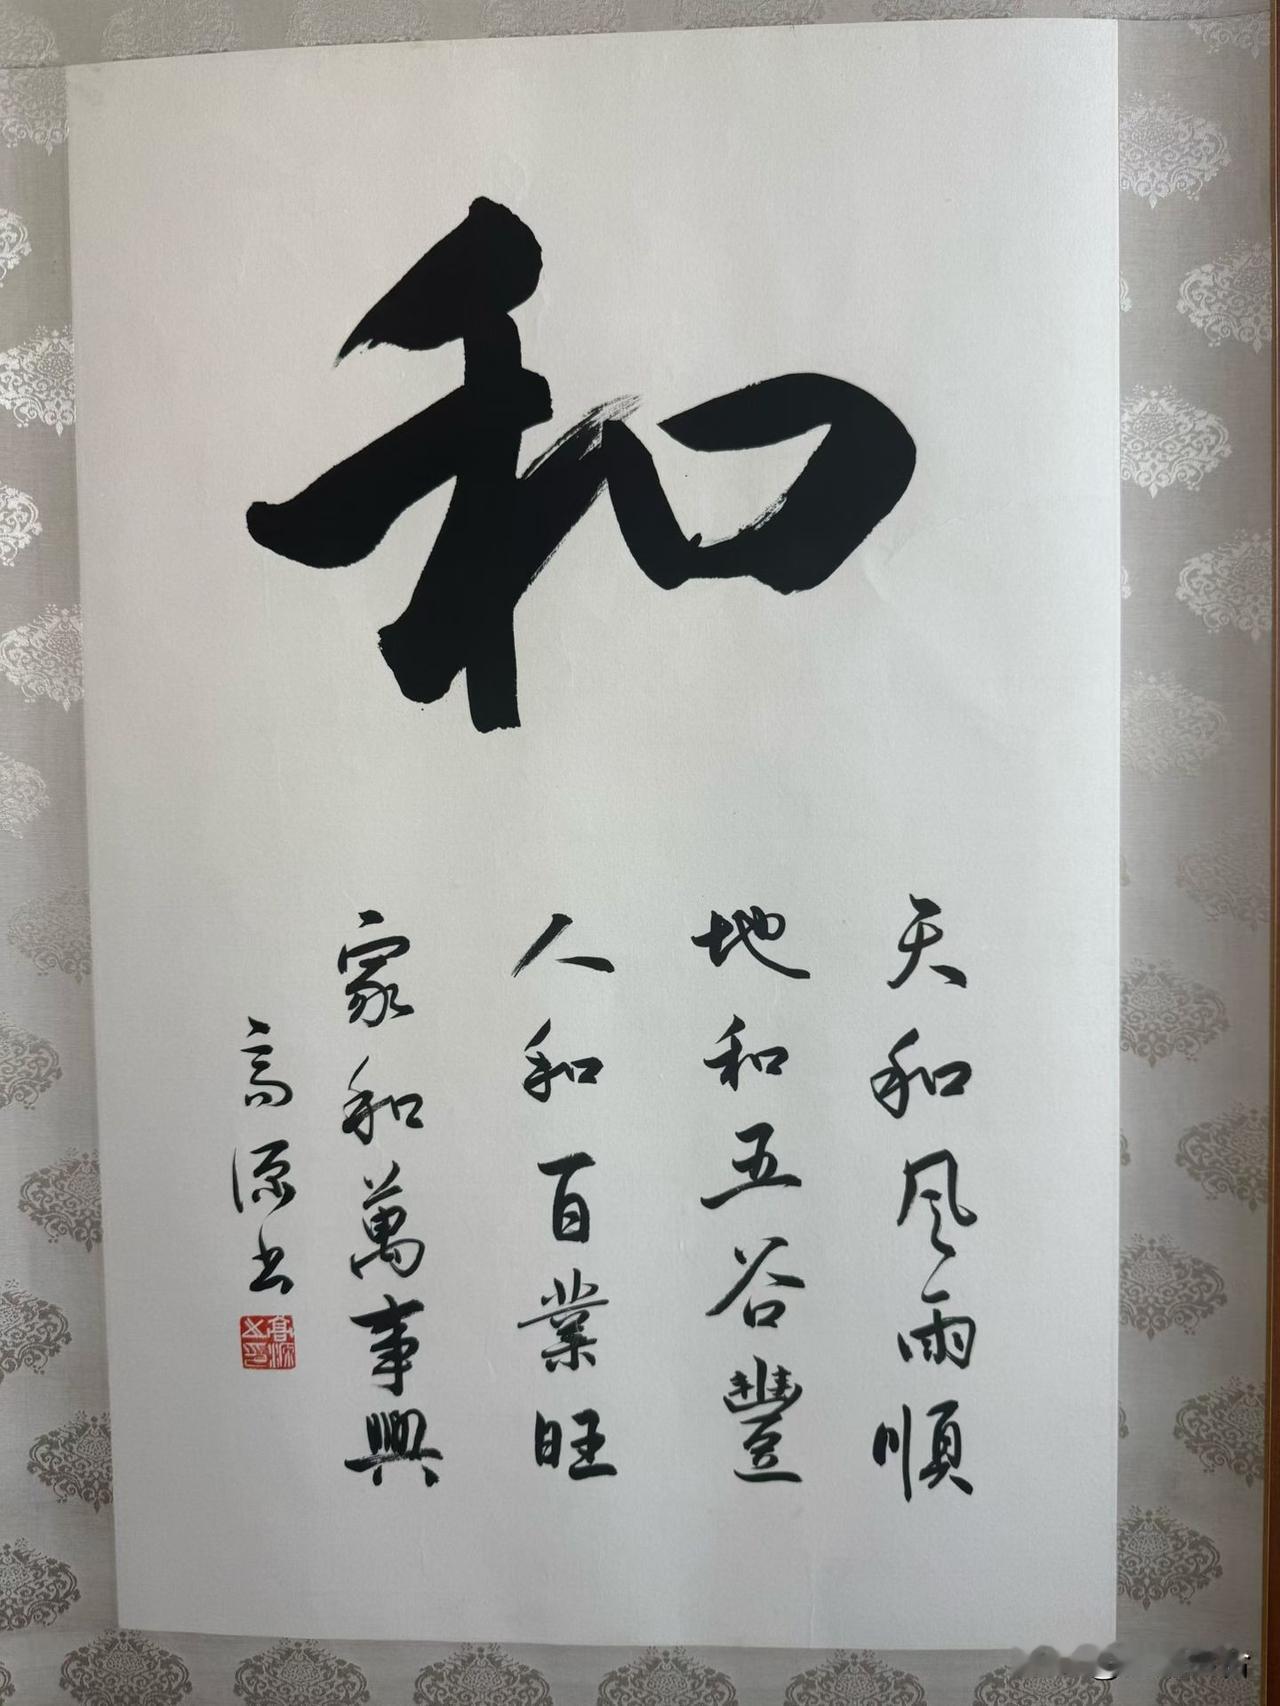 和
天和风雨順
地和五谷豐
人和百業旺
家和萬事興
高源书